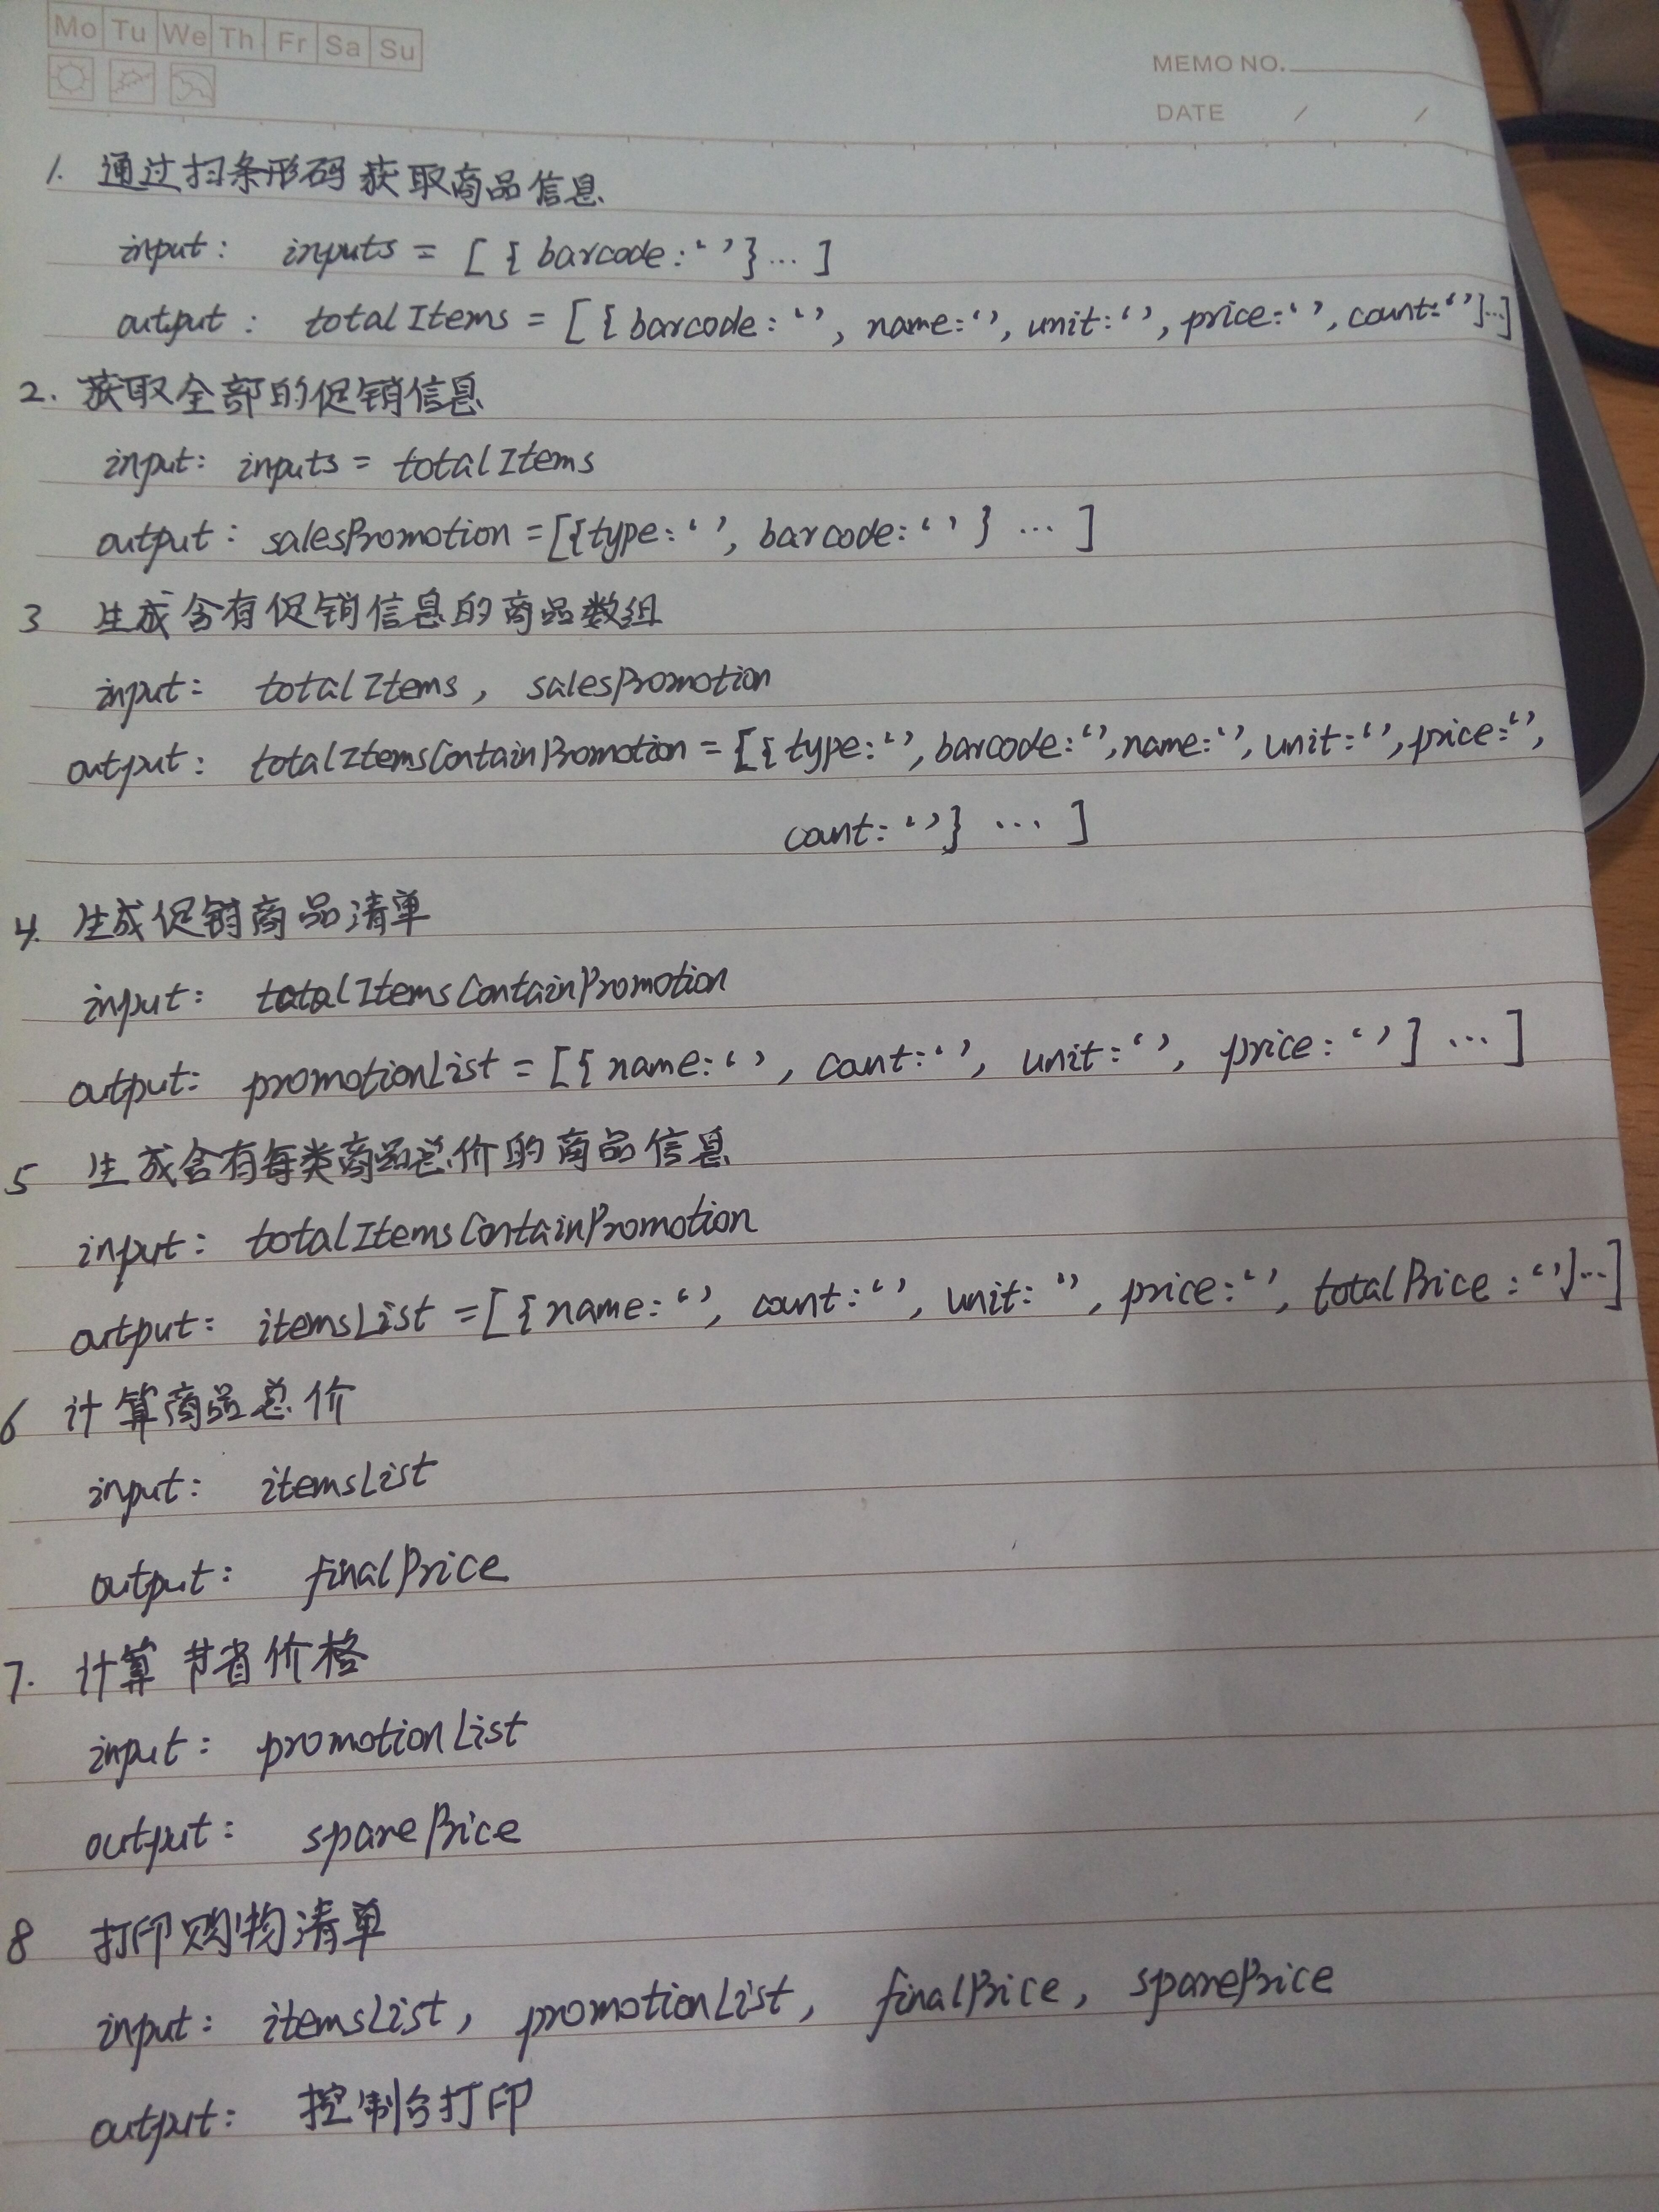 Mo Tu We Th Fr Sa Su
MEMO NO.
DATE / /
1. 通过扫条形码获取商品信息
input: inputs = [ { barcode: ‘ ’ } ... ]
output: totalItems = [ { barcode: ‘ ’, name: ‘ ’, unit: ‘ ’, price: ‘ ’, count: ‘ ’ } ... ]
2. 获取全部的促销信息
input: inputs = totalItems
output: salesPromotion = [ { type: ‘ ’, barcode: ‘ ’ } ... ]
3 生成含有促销信息的商品数组
input: totalItems, salesPromotion
output: totalItemsContainPromotion = [ { type: ‘ ’, barcode: ‘ ’, name: ‘ ’, unit: ‘ ’, price: ‘ ’,
count: ‘ ’ } ... ]
4. 生成促销商品清单
input: totalItemsContainPromotion
output: promotionList = [ { name: ‘ ’, count: ‘ ’, unit: ‘ ’, price: ‘ ’ ] ... ]
5 生成含有每类商品总价的商品信息
input: totalItemsContainPromotion
output: itemsList = [ { name: ‘ ’, count: ‘ ’, unit: ‘ ’, price: ‘ ’, totalPrice: ‘ ’ } ... ]
6 计算商品总价
input: itemsList
output: finalPrice
7. 计算节省价格
input: promotionList
output: sparePrice
8 打印购物清单
input: itemsList, promotionList, finalPrice, sparePrice
output: 控制台打印